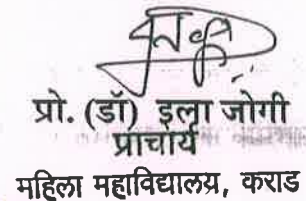 प्रो. (डॉ) इला जोगी
प्राचार्य
महिला महाविद्यालय, कराड